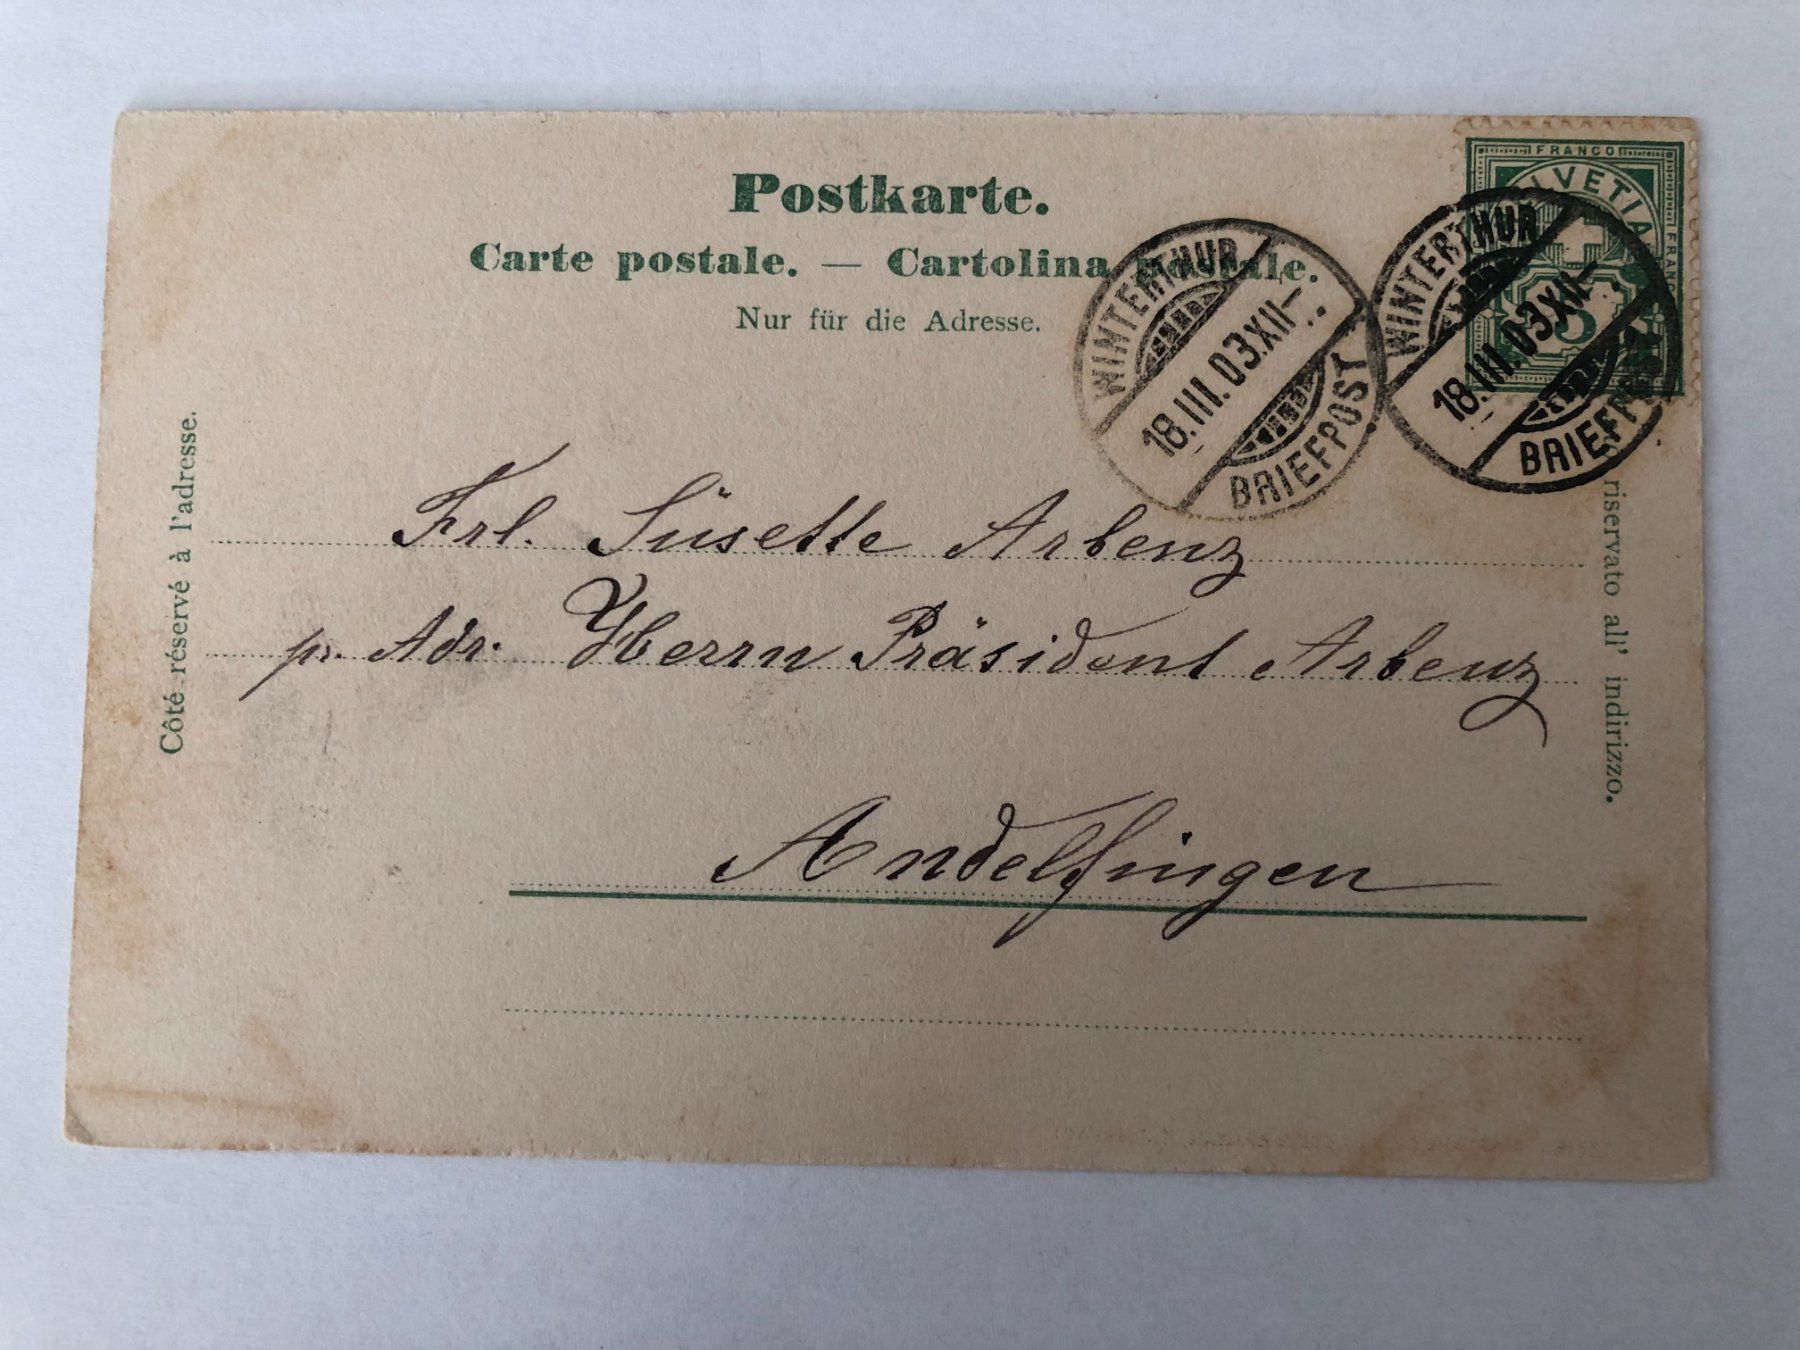 Postkarte.
Carte postale. — Cartolina postale.
Nur für die Adresse.
FRANCO
HELVETIA
FRANCO
5
WINTERTHUR
18.III.03.XII—
BRIEFPOST
WINTERTHUR
18.III.03.XII—
BRIEFPOST
Côté réservé à l'adresse.
riservato all' indirizzo.
Frl. Süsette Arbenz
pr. Adr. Herrn Präsident Arbenz
Andelfingen